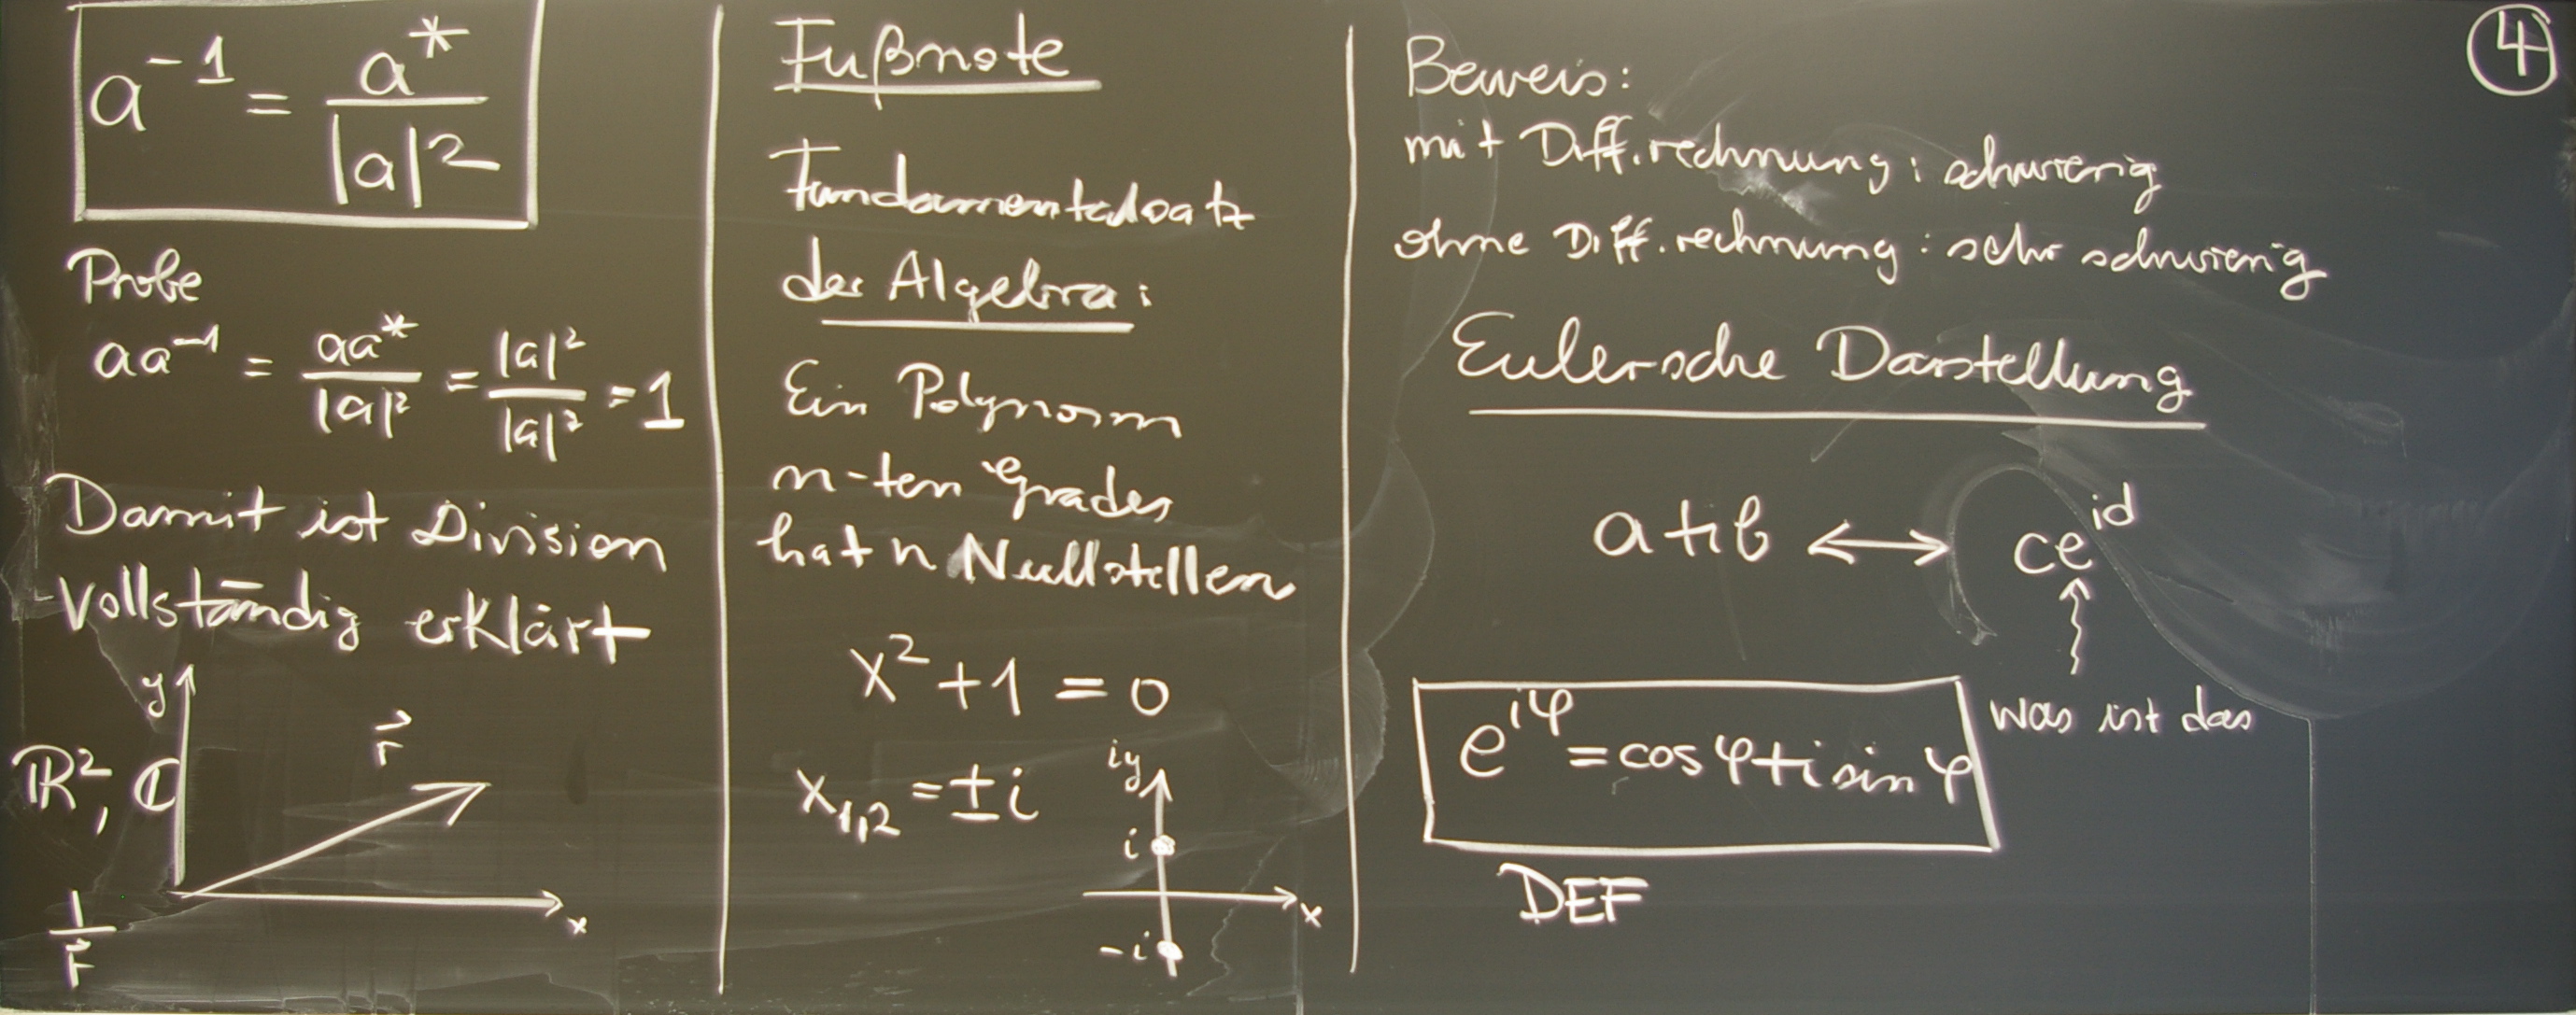 a⁻¹ = a*/|a|²
Probe
aa⁻¹ = aa*/|a|² = |a|²/|a|² = 1
Damit ist Division
Vollständig erklärt
y
r⃗
ℝ², ℂ
x
1/r⃗
Fußnote
Fundamentalsatz
der Algebra:
Ein Polynom
n-ten Grades
hat n Nullstellen
x² + 1 = 0
x₁,₂ = ± i
iy
i
x
-i
④
Beweis:
mit Diff.rechnung: schwierig
ohne Diff.rechnung: sehr schwierig
Eulersche Darstellung
a+ib ⟷ ce^{id}
was ist das
e^{iφ} = cos φ + i sin φ
DEF